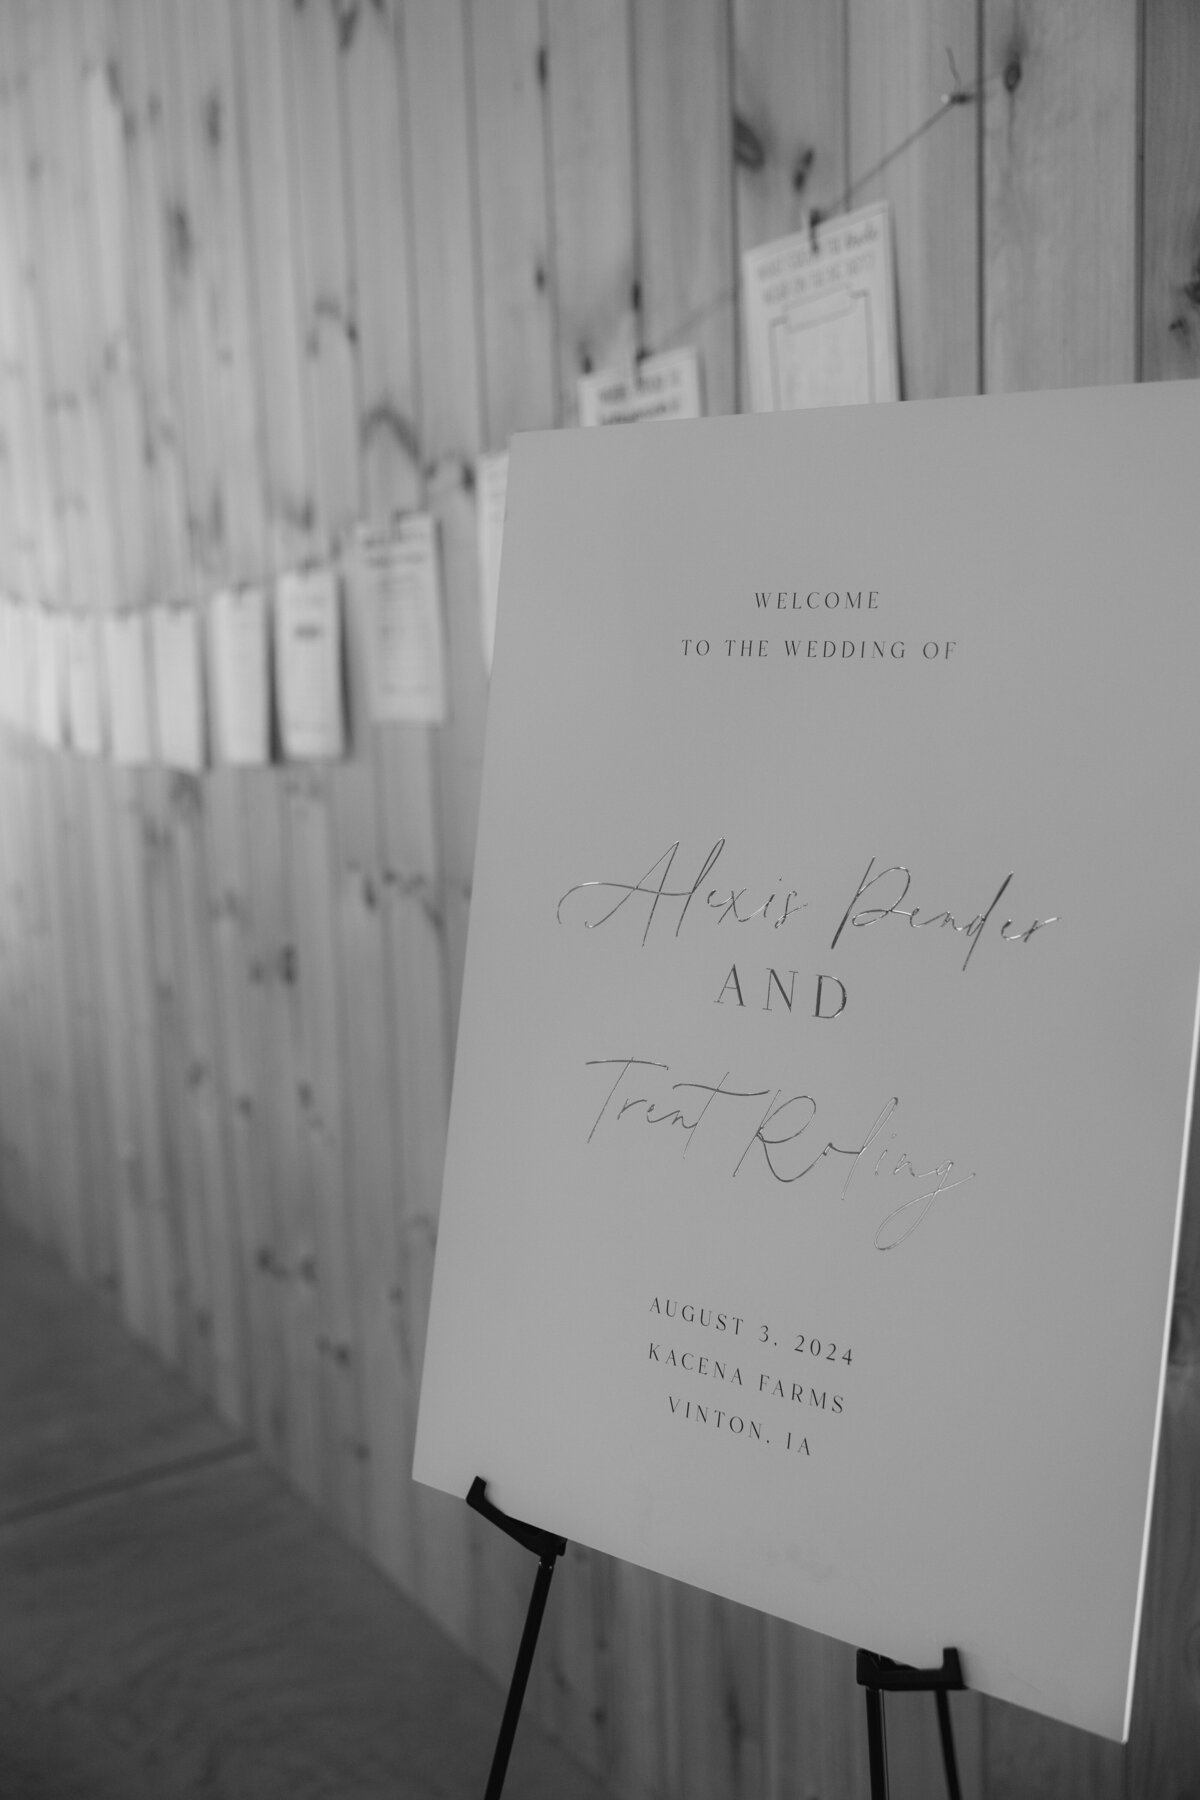 WELCOME
TO THE WEDDING OF
Alexis Pender
AND
Trent Roling
AUGUST 3, 2024
KACENA FARMS
VINTON, IA